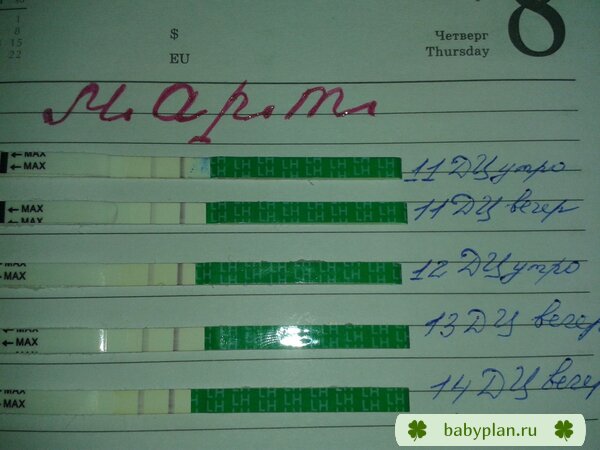 1
8
15
22
$
EU
Четверг
Thursday
8
М.А.р.т.
←MAX
←MAX
LH LH LH LH LH LH LH
11 ДЦ утро
←MAX
←MAX
LH LH LH LH LH LH LH
11 ДЦ вечер
←MAX
LH LH LH LH LH LH LH
12 ДЦ утро
←MAX
LH LH LH LH LH LH LH
13 ДЦ вечер
←MAX
LH LH LH LH LH LH LH
14 ДЦ вечер
babyplan.ru